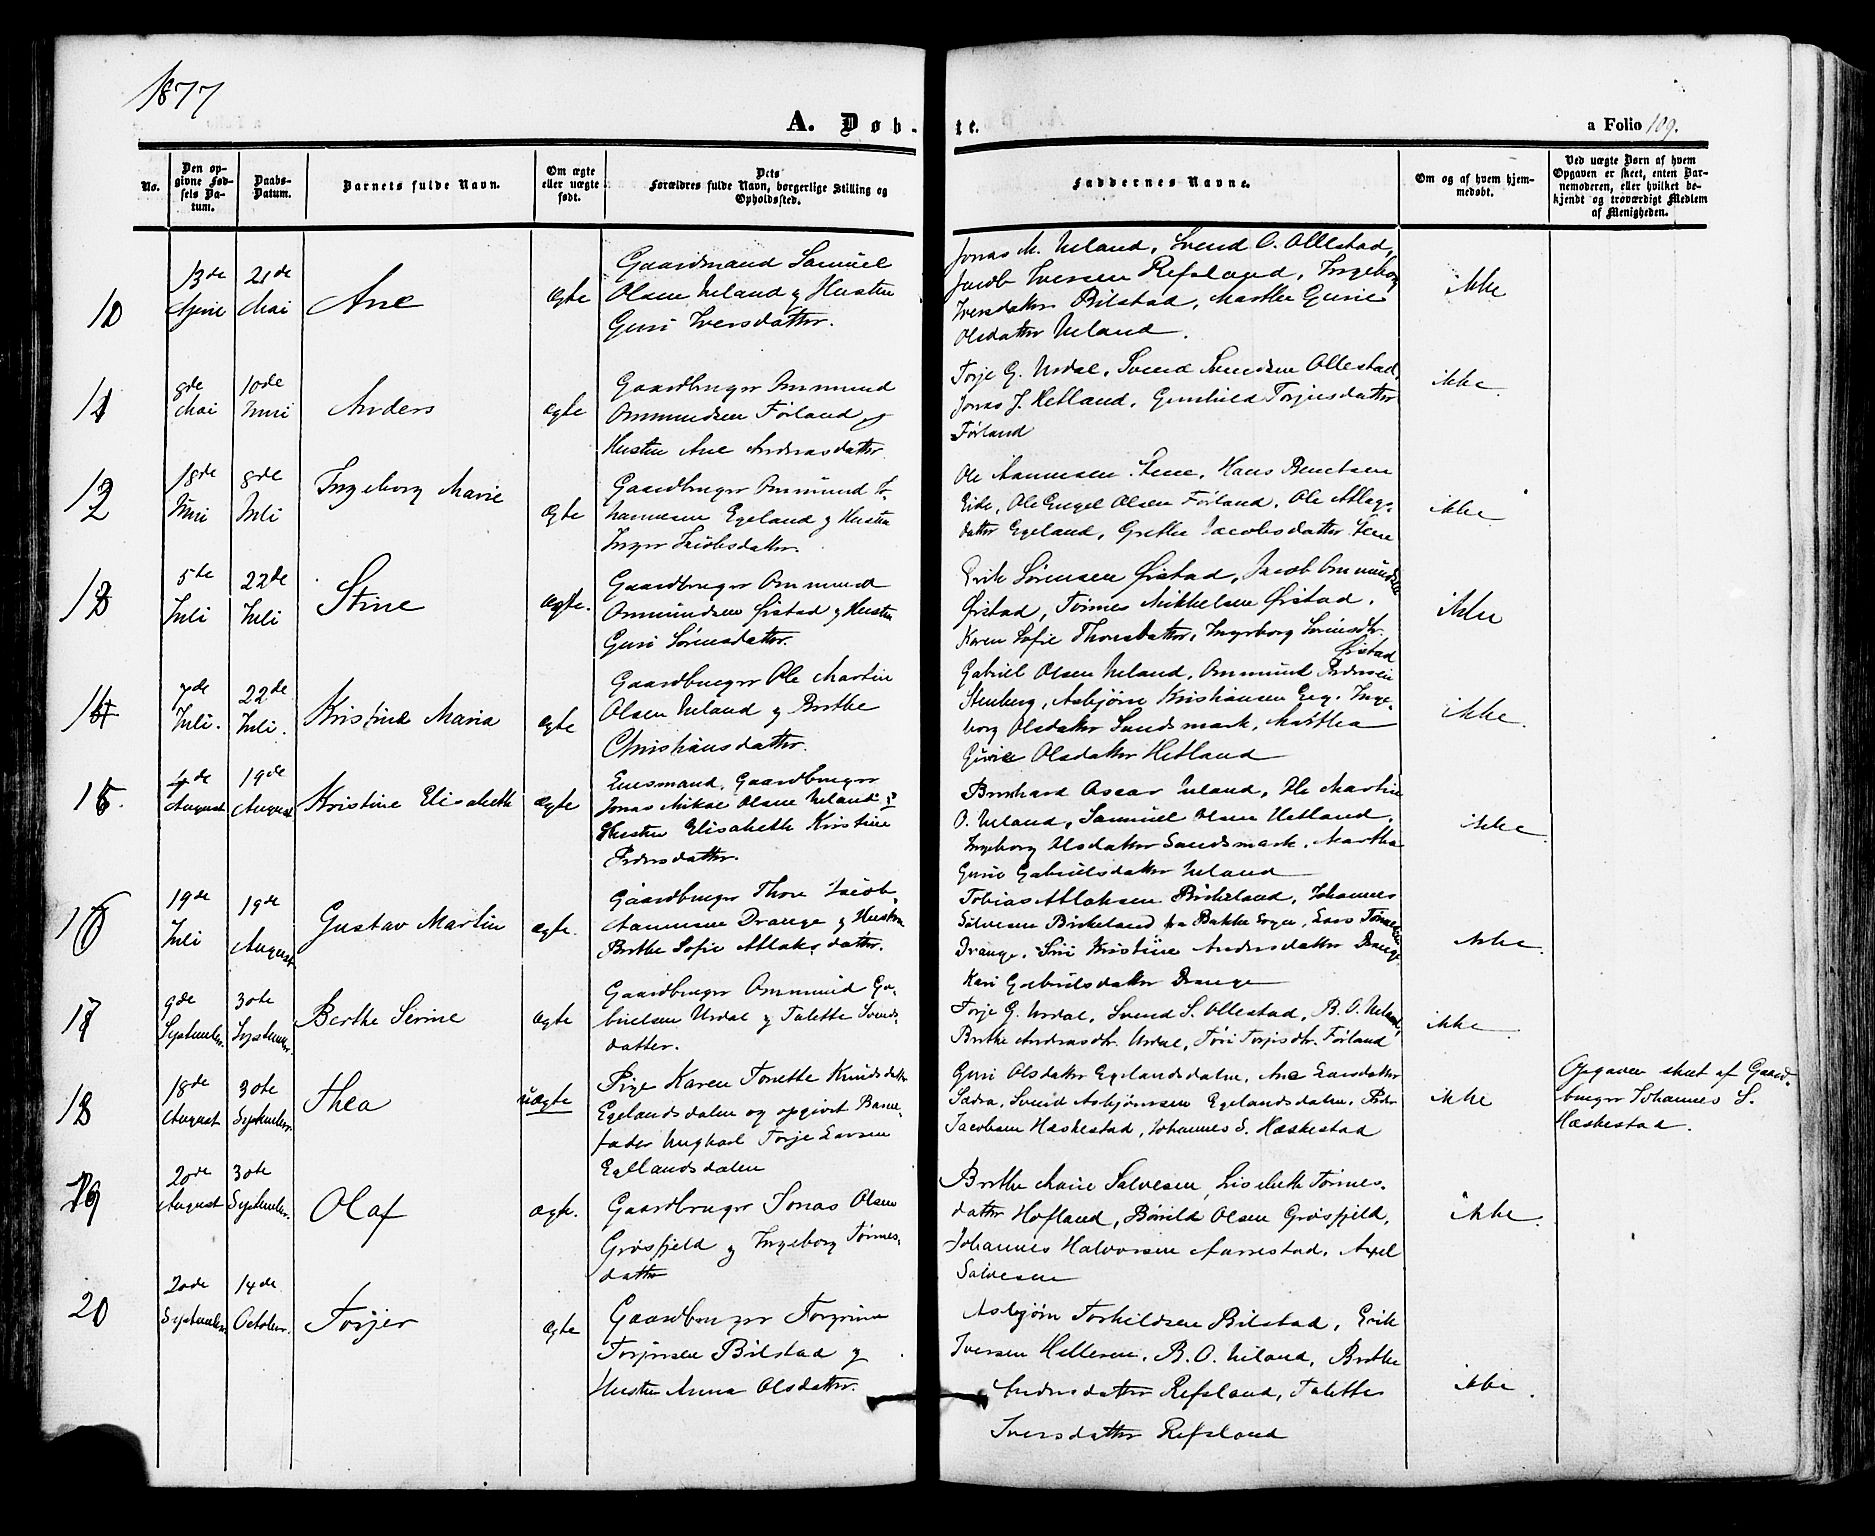 1877
A. Døb-
te.
a Folio 109.
No.
Den op-
givne Fød-
sels Da-
tum.
Daabs-
Datum.
Barnets fulde Navn.
Om ægte
eller uægte
født.
Dets
Forældres fulde Navn, borgerlige Stilling og
Opholdssted.
Faddernes Navne.
Om og af hvem hjem-
medøbt.
Ved uægte Børn af hvem
Opgaven er skeet, enten Bar-
nemoderen, eller hvilket be-
kjendt og troværdigt Medlem
af Menigheden.
10
13de
April
21de
Mai
Ane
ægte
Gaardmand Samuel
Olsen Ueland og Hustru
Guri Iversdatter.
Jonas M. Ueland, Svend O. Ollestad,
Jacob Iversen Refsland, Ingeborg
Iversdatter Bilstad, Marthe Gurie
Olsdatter Ueland.
ikke
11
8de
Mai
10de
Juni
Anders
ægte
Gaardbruger Ommund
Ommundsen Førland og
Hustru Ane Andreasdatter.
Torje G. Urdal, Svend Svendsen Ollestad,
Jonas J. Hetland, Gunhild Torjusdatter
Førland
ikke
12
18de
Juni
8de
Juli
Ingeborg Marie
ægte
Gaardbruger Ommund
Egeland og Hustru
Inger Jacobsdatter.
Ole Aanensen Hans Bentsen
Eide, Ole Engel Olsen Førland, Ole Atlags-
datter Egeland, Grethe Jacobsdatter
ikke
13
5te
Juli
22de
Juli
Stine
ægte.
Gaardbruger Ommund
Ommundsen Øistad og Hustru
Guri Sørensdatter.
Erik Sørensen Øistad, Jacob Ommundsen
Øistad, Tønnes Mikkelsen Øistad,
Karen Sofie Thorsdatter, Ingeborg Sørensdtr.
Øistad
ikke
14
7de
Juli.
22de
Juli.
Kristine Maria
ægte
Gaardbruger Ole Martin
Olsen Ueland og Berthe
Christiansdatter.
Gabriel Olsen Ueland, Ommund Pedersen
Stenberg, Asbjørn Kristiansen Eeg, Inge-
borg Olsdatter Sandsmark, Martha
Gurie Olsdatter Hetland
ikke.
15.
4de
August
19de
August
Kristine Elisabeth
ægte
Enkemand, Gaardbruger
Jonas Mikal Olsen Ueland og
Hustru Elisabeth Kristine
Pedersdatter.
Bernhard Oscar Ueland, Ole Martin
O. Ueland, Samuel Olsen Hetland,
Ingeborg Olsdatter Sandsmark, Martha
Gurie Gabrielsdatter Ueland
ikke.
16
19de
Juli
19de
August
Gustav Martin
ægte.
Gaardbruger Thore Jacob
Aanensen Drange og Hustru
Berthe Sofie Atlaksdatter.
Tobias Atlaksen Birkeland, Johannes
Salvesen Birkeland fra Bakke Sogn, Lars Tønnesen
Drange, Siri Kristine Andersdatter Drange
Kari Gabrielsdatter Drange
ikke.
17
9de
September.
30te
September.
Berthe Serine
ægte
Gaardbruger Ommund Ga-
brielsen Urdal og Talette Svends-
datter.
Torje G. Urdal, Svend S. Ollestad, B. O. Ueland,
Berthe Andreasdtr. Urdal, Tøri Torjusdtr. Førland
ikke
18
18de
August
30te
September.
Thea
uægte
Pige Karen Tonette Knudsdatter
Egelandsdalen og opgivet Barne-
fader Ungkarl Torje Larsen
Egelandsdalen
Guri Olsdatter Egelandsdalen, Ane Larsdatter
Svend Asbjørnsen Egelandsdalen, Peder
Jacobsen Hæskestad, Johannes S. Hæskestad
ikke
Opgaven skeet af Gaard-
bruger Johannes S.
Hæskestad.
19
20de
August
30te
September.
Olaf
ægte.
Gaardbruger Jonas Olsen
Grøsfjeld og Ingeborg Tønnes-
datter
Berthe Marie Salvesen, Lisebeth Tønnes-
datter Hofland, Børild Olsen Grøsfjeld,
Johannes Halvorsen Aarrestad, Axel
Salvesen
ikke.
20
20de
September.
14de
October.
Torjer
ægte
Gaardbruger Torgrim
Torjusen Bilstad og
Hustru Anna Olsdatter.
Asbjørn Torkildsen Bilstad, Erik
Iversen Helleren, B. O. Ueland, Berthe
Andersdatter Refsland, Talette
Iversdatter Refsland
ikke.